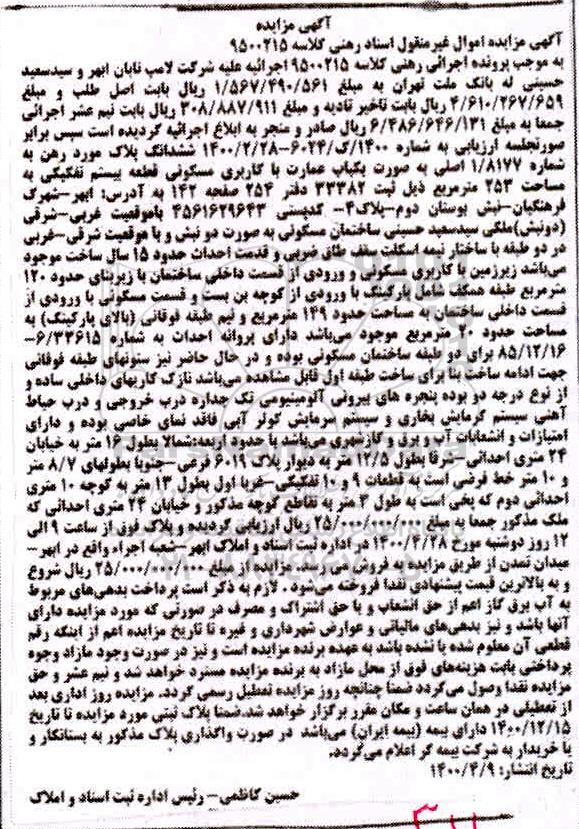 آگهی مزایده
آگهی مزایده اموال غیرمنقول اسناد رهنی کلاسه ۹۵۰۰۲۱۵
به موجب پرونده اجرائی رهنی کلاسه ۹۵۰۰۲۱۵ اجرائیه علیه شرکت لامپ تابان ابهر و سیدسعید
حسینی له بانک ملت تهران به مبلغ ۱/۵۶۷/۴۹۰/۵۶۱ ریال بابت اصل طلب و مبلغ
۴/۶۱۰/۲۶۷/۶۵۹ ریال بابت تاخیر تادیه و مبلغ ۳۰۸/۸۸۷/۹۱۱ ریال بابت نیم عشر اجرائی
جمعا به مبلغ ۶/۴۸۶/۶۴۶/۱۳۱ ریال صادر و منجر به ابلاغ اجرائیه گردیده است سپس برابر
صورتجلسه ارزیابی به شماره ۱۴۰۰/ک/۶۰۲۴-۱۴۰۰/۲/۲۸ ششدانگ پلاک مورد رهن به
شماره ۱/۸۱۷۷ اصلی به صورت یکباب عمارت با کاربری مسکونی قطعه بیستم تفکیکی به
مساحت ۲۵۳ مترمربع ذیل ثبت ۳۳۳۸۲ دفتر ۲۵۴ صفحه ۱۴۲ به آدرس: ابهر-شهرک
فرهنگیان-نبش بوستان دوم-پلاک۴- کدپستی ۴۵۶۱۶۲۹۶۴۳ باموقعیت غربی-شرقی
(دونبش)ملکی سیدسعید حسینی ساختمان مسکونی به صورت دو نبش و با موقعیت شرقی-غربی
در دو طبقه با ساختار نیمه اسکلت سقف طاق ضربی و قدمت احداث حدود ۱۵ سال ساخت موجود
می‌باشد زیرزمین با کاربری مسکونی و ورودی از قسمت داخلی ساختمان با زیربنای حدود ۱۲۰
مترمربع طبقه همکف شامل پارکینگ با ورودی از کوچه بن بست و قسمت مسکونی با ورودی از
قسمت داخلی ساختمان به مساحت حدود ۱۴۹ مترمربع و نیم طبقه فوقانی (بالای پارکینگ) به
مساحت حدود ۲۰مترمربع موجود می‌باشد دارای پروانه احداث به شماره ۶/۳۳۶۱۵-
۸۵/۱۲/۱۶ برای دو طبقه ساختمان مسکونی بوده و در حال حاضر نیز ستونهای طبقه فوقانی
جهت ادامه ساخت بنا برای ساخت طبقه اول قابل مشاهده می‌باشد نازک کاریهای داخلی ساده و
از نوع درجه دو بوده پنجره های بیرونی آلومینیومی تک جداره درب خروجی و درب حیاط
آهنی سیستم گرمایش بخاری و سیستم سرمایش کولر آبی فاقد نمای خاصی بوده و دارای
امتیازات و انشعابات آب و برق و گازشهری می‌باشد با حدود اربعه:شمالا بطول ۱۶ متر به خیابان
۲۴ متری احداثی-شرقا بطول ۱۲/۵ متر به دیوار پلاک ۶۰۱۹ فرعی-جنوبا بطولهای ۸/۷ متر
و ۱۰ متر خط فرضی است به قطعات ۹ و ۱۰ تفکیکی-غربا اول بطول ۱۳ متر به کوچه ۱۰ متری
احداثی دوم که پخی است به طول ۳ متر به تقاطع کوچه مذکور و خیابان ۲۴ متری احداثی که
ملک مذکور جمعا به مبلغ ۲۵/۰۰۰/۰۰۰/۰۰۰ ریال ارزیابی گردیده و پلاک فوق از ساعت ۹ الی
۱۲ روز دوشنبه مورخ ۱۴۰۰/۴/۲۸ در اداره ثبت اسناد و املاک ابهر-شعبه اجراء واقع در ابهر-
میدان تمدن از طریق مزایده به فروش می‌رسد. مزایده از مبلغ ۲۵/۰۰۰/۰۰۰/۰۰۰ ریال شروع
و به بالاترین قیمت پیشنهادی نقدا فروخته می‌شود . لازم به ذکر است پرداخت بدهی‌های مربوط
به آب برق گاز اعم از حق انشعاب و یا حق اشتراک و مصرف در صورتی که مورد مزایده دارای
آنها باشد و نیز بدهی‌های مالیاتی و عوارض شهرداری و غیره تا تاریخ مزایده اعم از اینکه رقم
قطعی آن معلوم شده یا نشده باشد به عهده برنده مزایده است و نیز در صورت وجود مازاد وجوه
پرداختی بابت هزینه‌های فوق از محل مازاد به برنده مزایده مسترد خواهد شد و نیم عشر و حق
مزایده نقدا وصول می‌گردد ضمنا چنانچه روز مزایده تعطیل رسمی گردد. مزایده روز اداری بعد
از تعطیلی در همان ساعت و مکان مقرر برگزار خواهد شد.ضمنا پلاک ثبتی مورد مزایده تا تاریخ
۱۴۰۰/۱۲/۱۵ دارای بیمه (بیمه ایران) می‌باشد در صورت واگذاری پلاک مذکور به بستانکار و
یا خریدار به شرکت بیمه گر اعلام می‌گردد.
تاریخ انتشار: ۱۴۰۰/۴/۹
حسین کاظمی- رئیس اداره ثبت اسناد و املاک